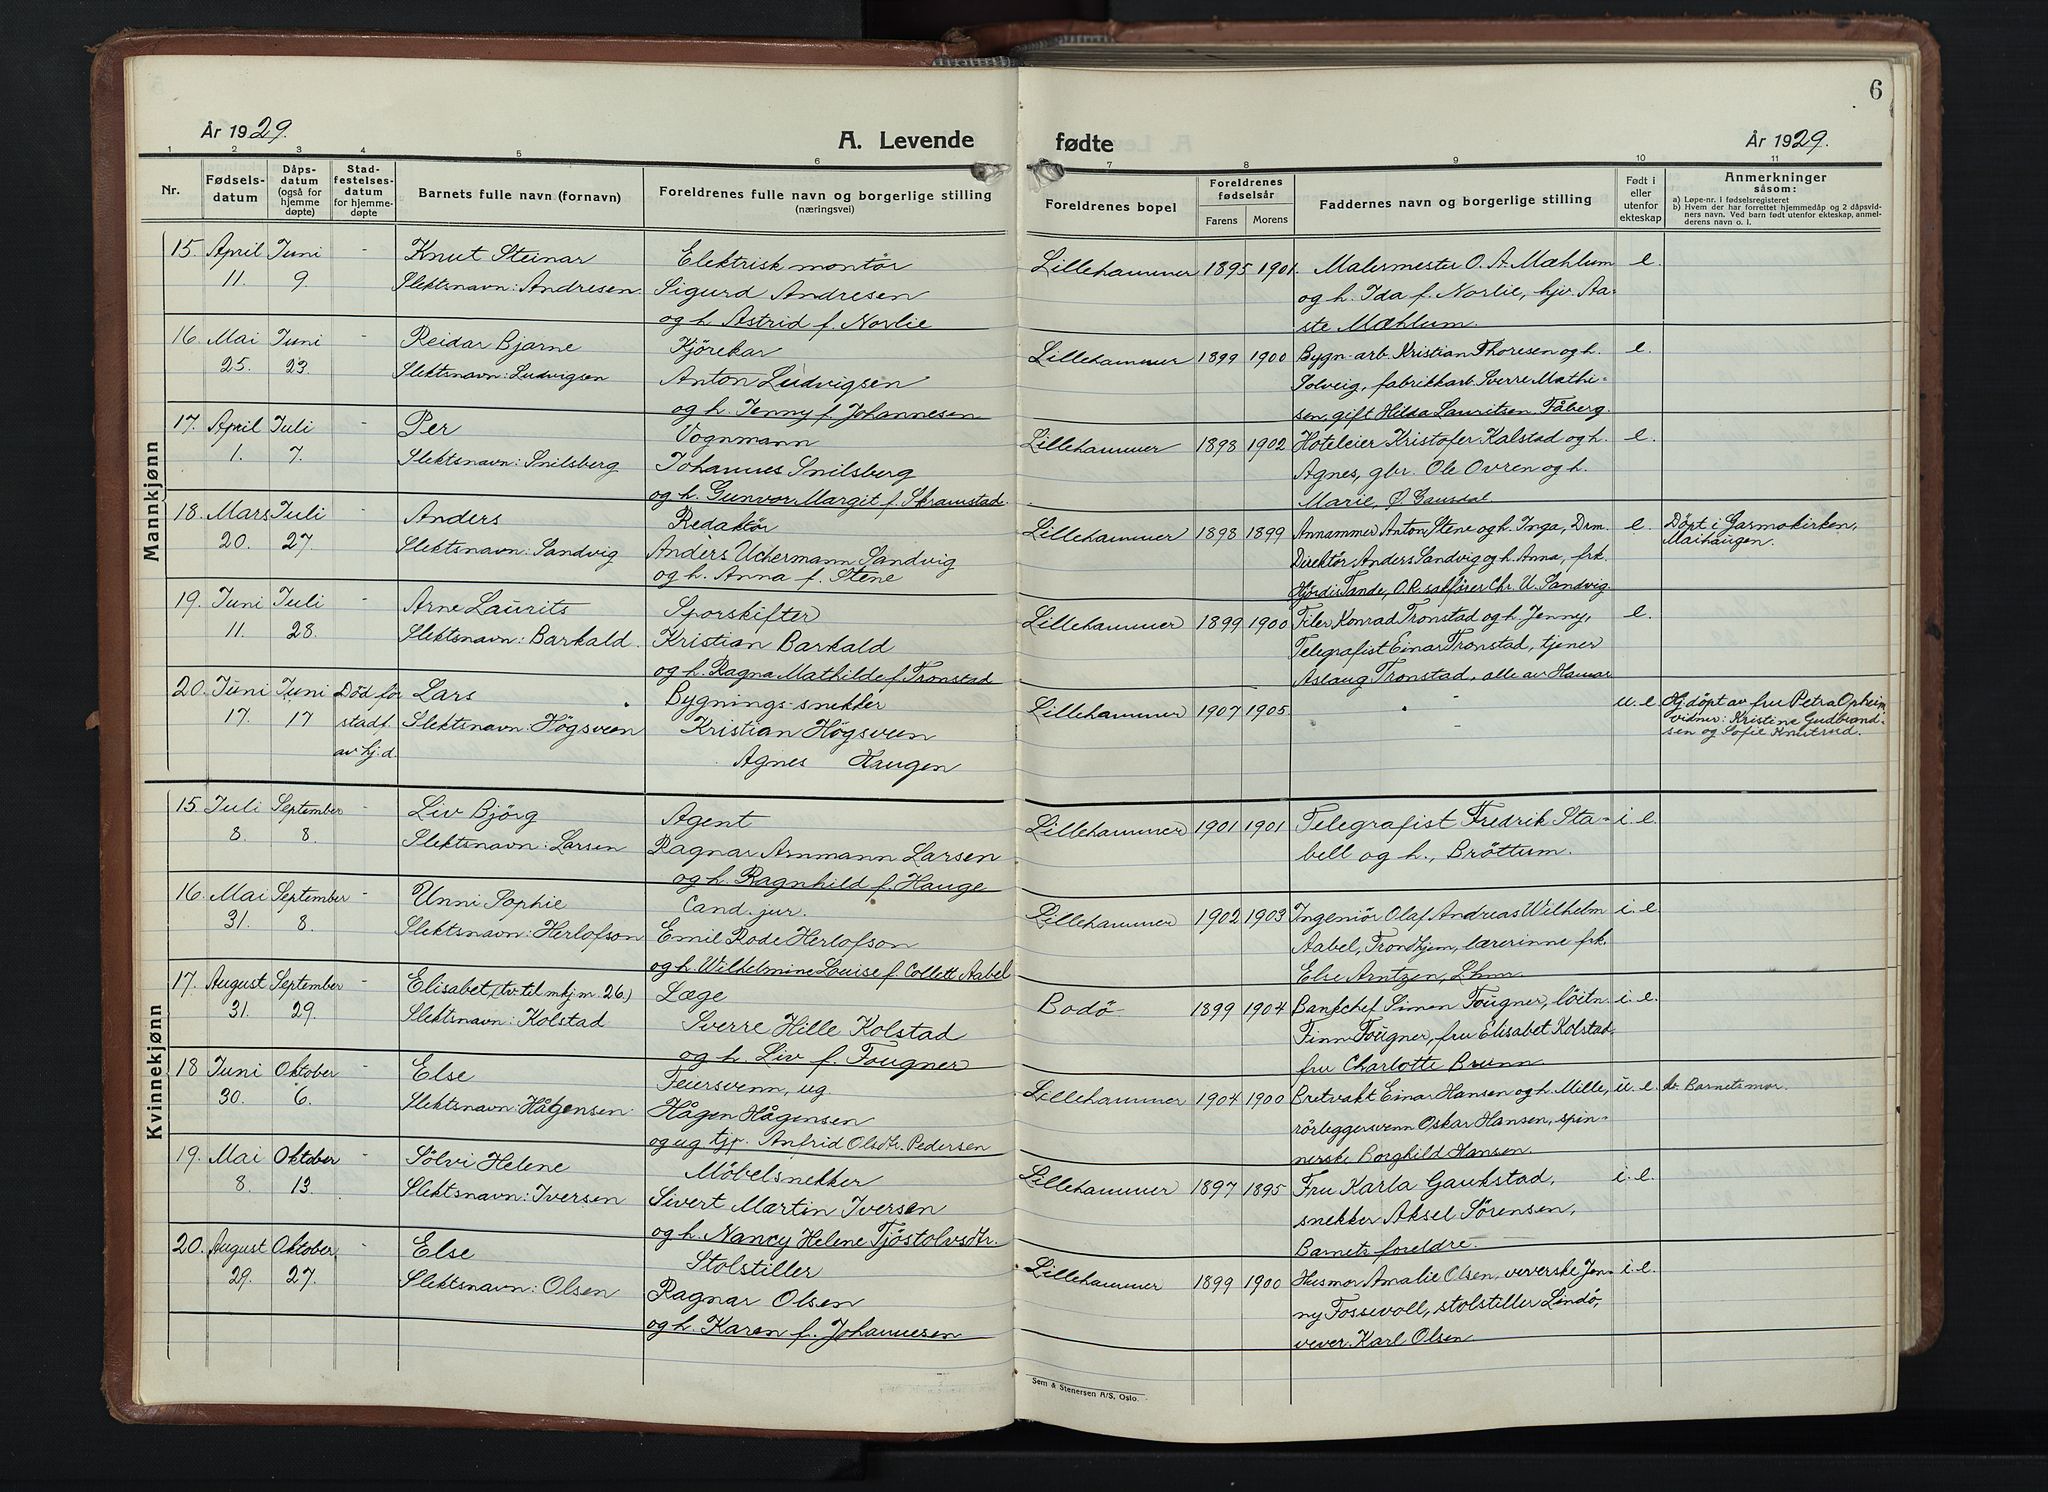 6
År 1929.
A. Levende
fødte
År 1929.
1 2 3 4 5 6 7 8 9 10 11
Nr.
Fødsels-
datum
Dåps-
datum
(også for
hjemme
døpte)
Stad-
festelses-
datum
for hjemme-
døpte
Barnets fulle navn (fornavn)
Foreldrenes fulle navn og borgerlige stilling
(næringsvei)
Foreldrenes bopel
Foreldrenes
fødselsår
Farens Morens
Faddernes navn og borgerlige stilling
Født i
eller
utenfor
ekteskap
Anmerkninger
såsom:
a) Løpe-nr. i fødselsregisteret
b) Hvem der har forrettet hjemmedåp og 2 dåpsvid-
ners navn. Ved barn født utenfor ekteskap, anmel-
derens navn o. l.
Mannkjønn
15. April Juni - Knut Steinar Elektrisk montör
11. 9 Slektsnavn: Andresen. Sigurd Andresen
og h. Astrid f. Norlie
Lillehammer 1895 1901. Malermester O. A. Mæhlum e.
og h. Ida f. Norlie, hjv. Aa-
ste Mæhlum.
16. Mai Juni - Reidar Bjarne Kjörekar
25. 23. Slektsnavn: Ludvigsen Anton Ludvigsen
og h. Jenny f. Johannesen
Lillehammer 1899 1900 Bygn.arb. Kristian Thoresen og h. e.
Solveig, fabrikkarb. Sverre Mathi-
sen, gift Hilda Lauritsen. Fåberg.
17. April Juli - Per Vognmann
1. 7. Slektsnavn: Snilsberg Johannes Snilsberg
og h. Gunvor Margit f. Skramstad.
Lillehammer 1898 1902 Hoteleier Kristofer Kalstad og h. e.
Agnes, gbr. Ole Ovren og h.
Marie, Ø. Gausdal
18. Mars Juli - Anders Redaktör
20. 27. Slektsnavn: Sandvig Anders Uchermann Sandvig
og h. Anna f. Stene
Lillehammer 1898 1899 Annammer Anton Stene og h. Inga, Drm. e. Döpt i Garmokirken,
Direktör Anders Sandvig og h. Anna, frk. Maihaugen.
Hjördis Tande, O.R.sakförer Chr. U. Sandvig.
19. Juni Juli - Arne Laurits Sporskifter
11. 28. Slektsnavn: Barkald. Kristian Barkald
og h. Ragna Mathilde f. Tronstad
Lillehammer 1899 1900 Filer Konrad Tronstad og h. Jenny, e.
Telegrafist Einar Tronstad, tjener
Aslaug Tronstad, alle av Hamar
20. Juni Juni Död för Lars Bygnings-snekker
17. 17 stadf. Slektsnavn: Högsveen Kristian Högsveen
av hj. d. Agnes Haugen
Lillehammer 1907 1905. - u. e. Hj. döpt av fru Petra Opheim
vidner: Kristine Gudbrand-
sen og Sofie Knutrud.
Kvinnekjønn
15. Juli September - Liv Björg Agent
8. 8. Slektsnavn: Larsen Ragnar Arnmann Larsen
og h. Ragnhild f. Hauge
Lillehammer 1901 1901 Telegrafist Fredrik Sta- i. e.
bell og h., Bröttum.
16. Mai September - Unni Sophie Cand. jur.
31. 8. Slektsnavn: Herlofson Emil Rode Herlofson
og h. Wilhelmine Louise f. Collett Aabel
Lillehammer 1902 1903 Ingeniör Olaf Andreas Wilhelm i. e.
Aabel, Trondhjem, lærerinne frk.
Else Arntzen, Lhmr.
17. August September - Elisabet, (tv. til mkj. nr. 26.) Læge
31. 29. Slektsnavn: Kolstad Sverre Hille Kolstad
og h. Liv f. Fougner
Bodö 1899 1904 Bankchef Simen Fougner, löitn. i. e.
Finn Fougner, fru Elisabet Kolstad,
fru Charlotte Brunn
18 Juni Oktober - Else Feiersvenn, ug.
30. 6. Slektsnavn: Hågensen. Hågen Hågensen
og ug. tjp. Anfrid Olsdtr. Pedersen
Lillehammer 1904 1900 Bretvakt Einar Hansen og h. Mille, u. e. b. Barnets mor.
rörleggersvenn Oskar Hansen, spin-
nerske Borghild Hansen.
19. Mai Oktober - Sölvi Helene Möbelsnekker
8. 13. Slektsnavn: Iversen Sivert Martin Iversen
og h. Nancy Helene Tjöstolvsdtr.
Lillehammer 1897 1895 Fru Karla Gaukstad, i. e.
snekker Aksel Sörensen,
Barnets foreldre.
20. August Oktober - Else Stolstiller
29. 27. Slektsnavn: Olsen Ragnar Olsen
og h. Karen f. Johannesen
Lillehammer 1899 1900 Husmor Amalie Olsen, veverske Jen- i. e.
ny Fossevoll, stolstiller Lindö,
vever Karl Olsen
Sem & Stenersen A/S, Oslo.